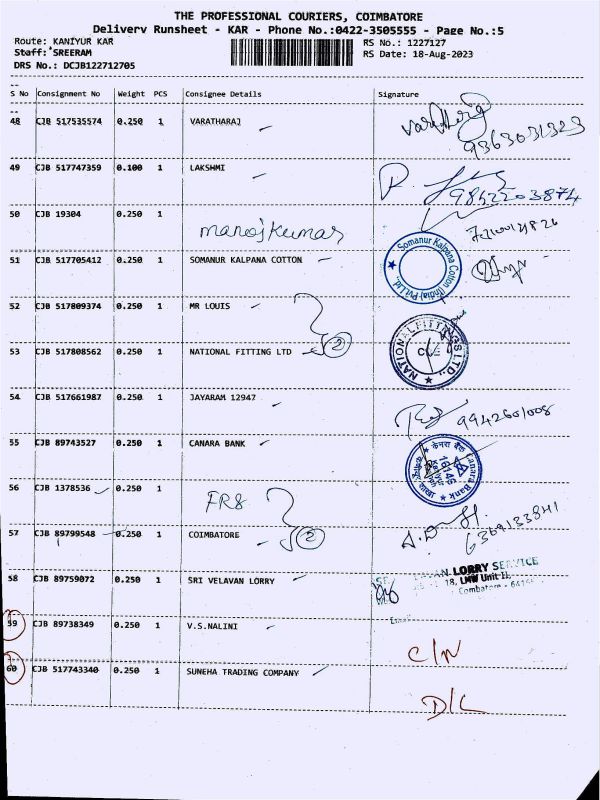 THE PROFESSIONAL COURIERS, COIMBATORE
Delivery Runsheet - KAR - Phone No.:0422-3505555 - Page No.:5
Route: KANIYUR KAR
RS No.: 1227127
Staff: SREERAM
RS Date: 18-Aug-2023
DRS No.: DCJB122712705
S No Consignment No Weight PCS Consignee Details Signature
48 CJB 517535574 0.250 1 VARATHARAJ
9363031323
49 CJB 517747359 0.100 1 LAKSHMI
9842203874
50 CJB 19304 0.250 1 manojkumar
51 CJB 517705412 0.250 1 SOMANUR KALPANA COTTON
Somanur Kalpana Cotton (India) Pvt.Ltd.
52 CJB 517809374 0.250 1 MR LOUIS
53 CJB 517808562 0.250 1 NATIONAL FITTING LTD 2
NATIONAL FITTINGS LTD.,
54 CJB 517661987 0.250 1 JAYARAM 12947
9942601008
55 CJB 89743527 0.250 1 CANARA BANK
केनरा बैंक Canara Bank
56 CJB 1378536 0.250 1 FR8
57 CJB 89799548 0.250 1 COIMBATORE 2
6369133841
58 CJB 89759072 0.250 1 SRI VELAVAN LORRY
LORRY SERVICE
18, LMW Unit II,
59 CJB 89738349 0.250 1 V.S.NALINI C/N
60 CJB 517743340 0.250 1 SUNEHA TRADING COMPANY D/L